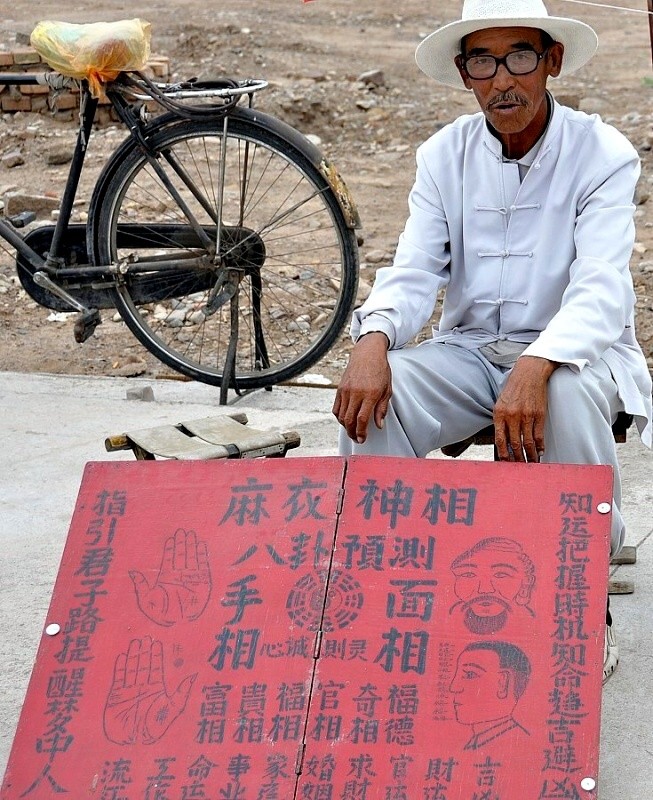 麻衣神相
八卦預測
手相
面相
心誠則灵
指引君子路提醒梦中人
知运把握時机知命趋吉避凶
富相
貴相
福相
官相
奇相
福德相
流
工
命运
事业
家
婚姻
求财
官
財
吉